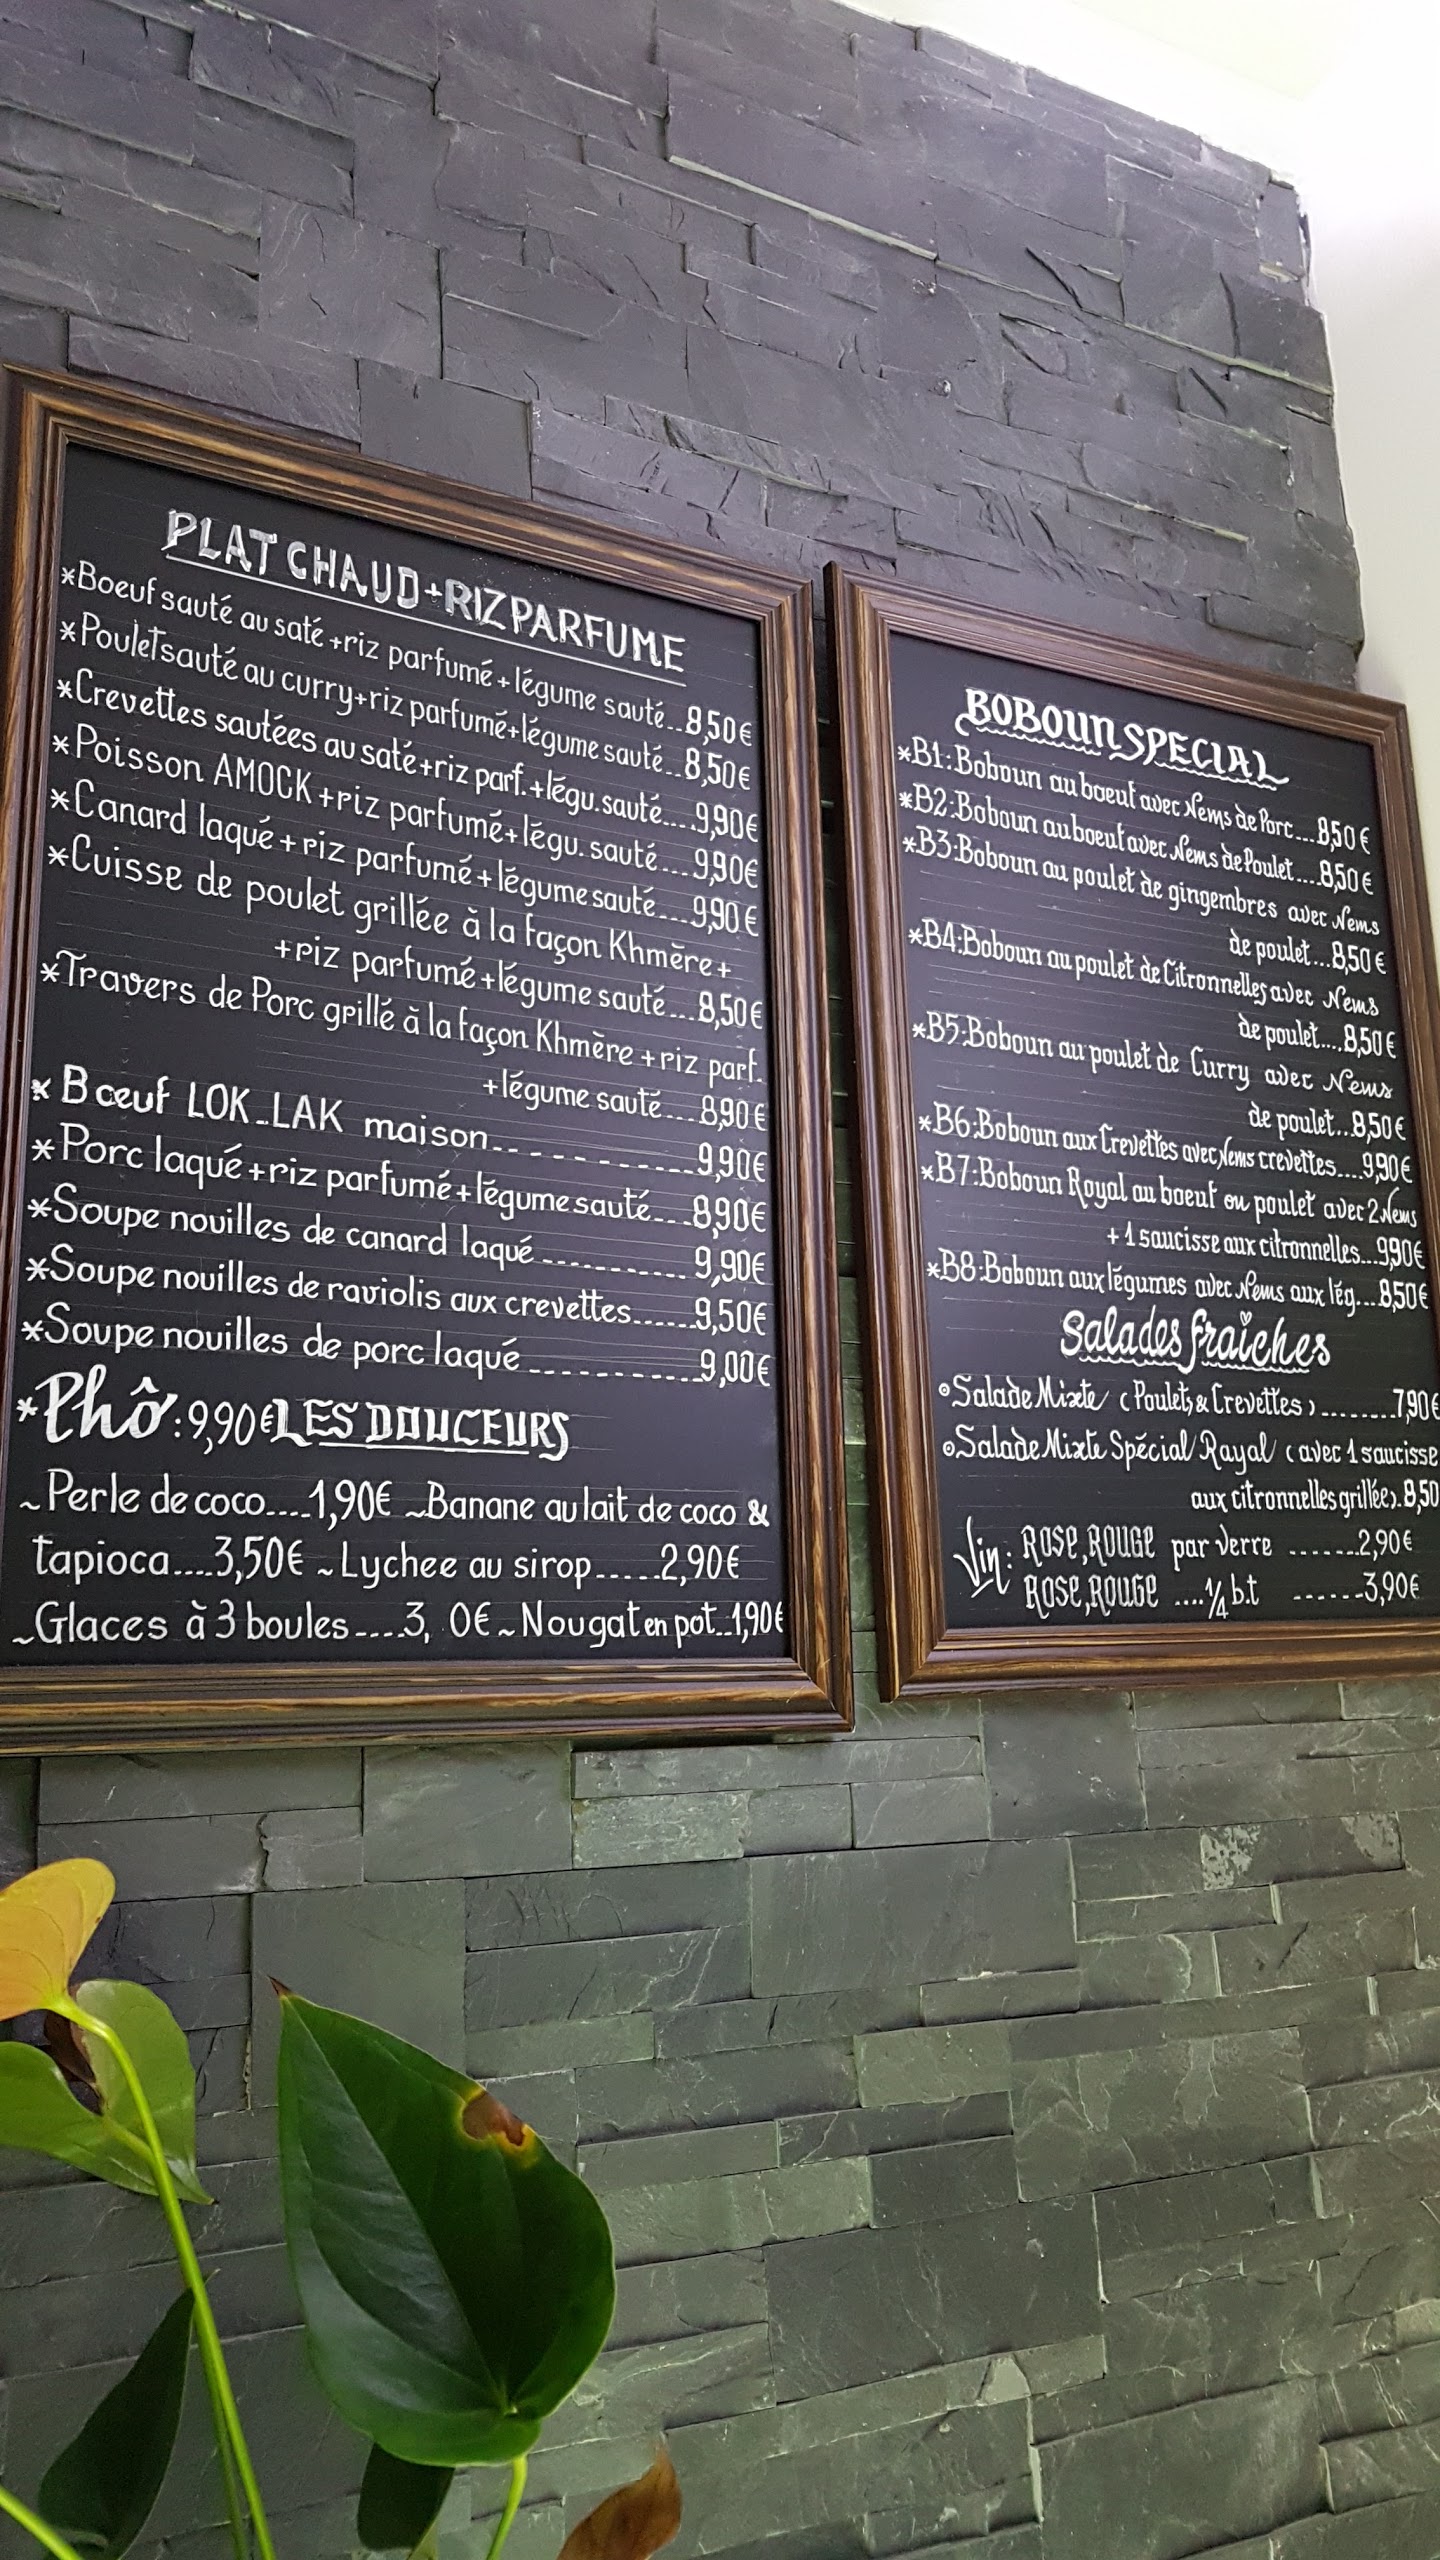 PLAT CHAUD+RIZ PARFUME
*Boeuf sauté au saté +riz parfumé+légume sauté..8,50€
*Poulet sauté au curry+riz parfumé+légume sauté..8,50€
*Crevettes sautées au saté+riz parf.+légu.sauté....9,90€
*Poisson AMOCK+riz parfumé+légu. sauté....9,90€
*Canard laqué+riz parfumé+légume sauté....9,90€
*Cuisse de poulet grillée à la façon Khmère+
+riz parfumé+légume sauté...8,50€
*Travers de Porc grillé à la façon Khmère +riz parf.
+légume sauté....8,90€
*Bœuf LOK_LAK maison............9,90€
*Porc laqué+riz parfumé+légume sauté...8,90€
*Soupe nouilles de canard laqué...........9,90€
*Soupe nouilles de raviolis aux crevettes......9,50€
*Soupe nouilles de porc laqué............9,00€
*Phô:9,90€ LES DOUCEURS
~Perle de coco....1,90€ ~Banane au lait de coco &
tapioca....3,50€ ~Lychee au sirop.....2,90€
~Glaces à 3 boules....3, 0€ ~Nougat en pot..1,90€
BOBOUN SPECIAL
*B1:Boboun au boeuf avec Nems de Porc...8,50€
*B2:Boboun au boeuf avec Nems de Poulet....8,50€
*B3:Boboun au poulet de gingembres avec Nems
de poulet...8,50€
*B4:Boboun au poulet de Citronnelles avec Nems
de poulet....8,50€
*B5:Boboun au poulet de Curry avec Nems
de poulet...8,50€
*B6:Boboun aux Crevettes avec Nems crevettes....9,90€
*B7:Boboun Royal au boeuf ou poulet avec 2 Nems
+1 saucisse aux citronnelles...9,90€
*B8:Boboun aux légumes avec Nems aux lég....8,50€
Salades fraîches
Salade Mixte (Poulets & Crevettes)........7,90€
Salade Mixte Spécial Rayal (avec 1 saucisse
aux citronnelles grillée).8,50
Vin: ROSE,ROUGE par verre .......2,90€
ROSE,ROUGE ....1/4 b.t ......3,90€